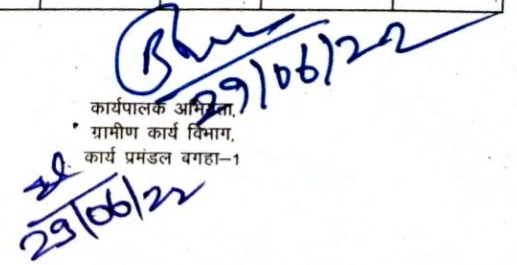 29/06/22
कार्यपालक अभियंता,
ग्रामीण कार्य विभाग,
कार्य प्रमंडल बगहा-1
29/06/22